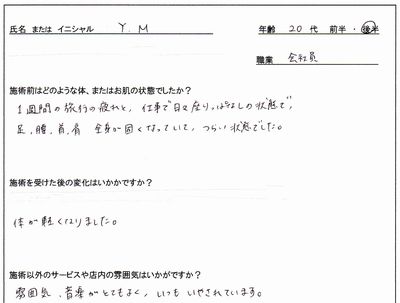 氏名 または イニシャル Y. M 年齢 20 代 前半 ・ 後半
職業 会社員
施術前はどのような体、またはお肌の状態でしたか？
1週間の旅行の疲れと、仕事で日々座りっぱなしの状態で、
足、腰、首、肩 全身が固くなっていて、つらい状態でした。
施術を受けた後の変化はいかかですか？
体が軽くなりました。
施術以外のサービスや店内の雰囲気はいかがですか？
雰囲気、音楽がとてもよく、いつも いやされています。